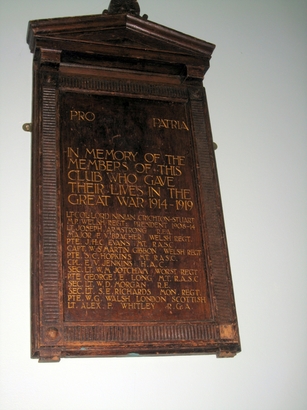 PRO PATRIA
IN MEMORY OF THE
MEMBERS OF THIS
CLUB WHO GAVE
THEIR LIVES IN THE
GREAT WAR 1914-1919
LT. COL. LORD NINIAN CRICHTON-STUART
WELSH REGT.
LT. JOSEPH ARMSTRONG R.E.
MAJOR WELSH REGT.
PTE. J.H.C. EVANS M.T. R.A.S.C.
CAPT. W. MARTIN GIBSON WELSH REGT
PTE. S.G. HOPKINS M.T. R.A.S.C.
PTE. JENKINS H.A.C.
SEC. LT. W.M. JOTCHAM WORST REGT
PTE. GEORGE E. LONG M.T. R.A.S.C.
SEC. LT. W.D. MORGAN R.E.
SEC. LT. RICHARDS MON. REGT.
PTE. W.G. WALSH LONDON SCOTTISH
LT. ALEX. P. WHITLEY R.G.A.